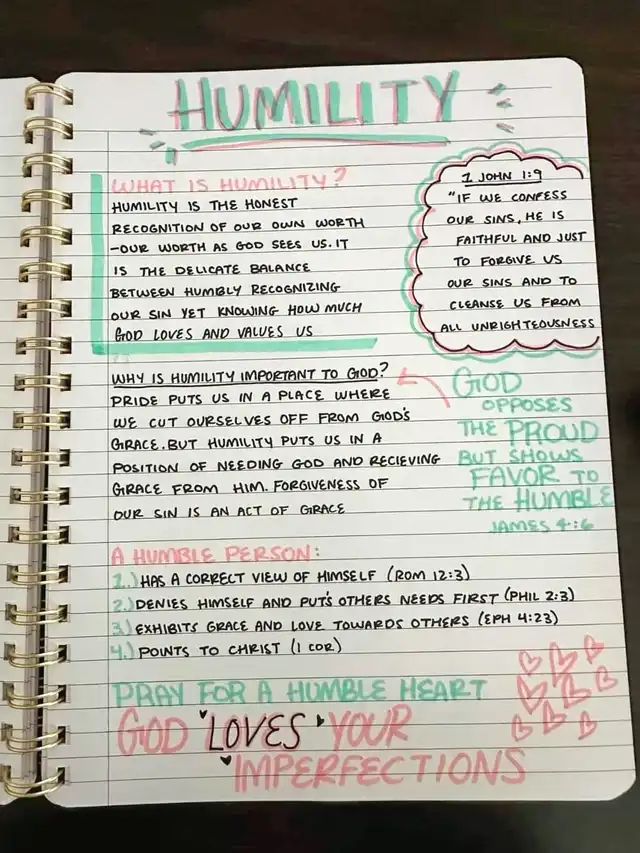 HUMILITY
WHAT IS HUMILITY?
HUMILITY IS THE HONEST
RECOGNITION OF OUR OWN WORTH
-OUR WORTH AS GOD SEES US. IT
IS THE DELICATE BALANCE
BETWEEN HUMBLY RECOGNIZING
OUR SIN YET KNOWING HOW MUCH
GOD LOVES AND VALUES US
1 JOHN 1:9
"IF WE CONFESS
OUR SINS, HE IS
FAITHFUL AND JUST
TO FORGIVE US
OUR SINS AND TO
CLEANSE US FROM
ALL UNRIGHTEOUSNESS
WHY IS HUMILITY IMPORTANT TO GOD?
PRIDE PUTS US IN A PLACE WHERE
WE CUT OURSELVES OFF FROM GOD'S
GRACE. BUT HUMILITY PUTS US IN A
POSITION OF NEEDING GOD AND RECIEVING
GRACE FROM HIM. FORGIVENESS OF
OUR SIN IS AN ACT OF GRACE
GOD
OPPOSES
THE PROUD
BUT SHOWS
FAVOR TO
THE HUMBLE
JAMES 4:6
A HUMBLE PERSON:
1.) HAS A CORRECT VIEW OF HIMSELF (ROM 12:3)
2.) DENIES HIMSELF AND PUT'S OTHERS NEEDS FIRST (PHIL 2:3)
3.) EXHIBITS GRACE AND LOVE TOWARDS OTHERS (EPH 4:23)
4.) POINTS TO CHRIST (1 COR)
PRAY FOR A HUMBLE HEART
GOD LOVES YOUR
IMPERFECTIONS